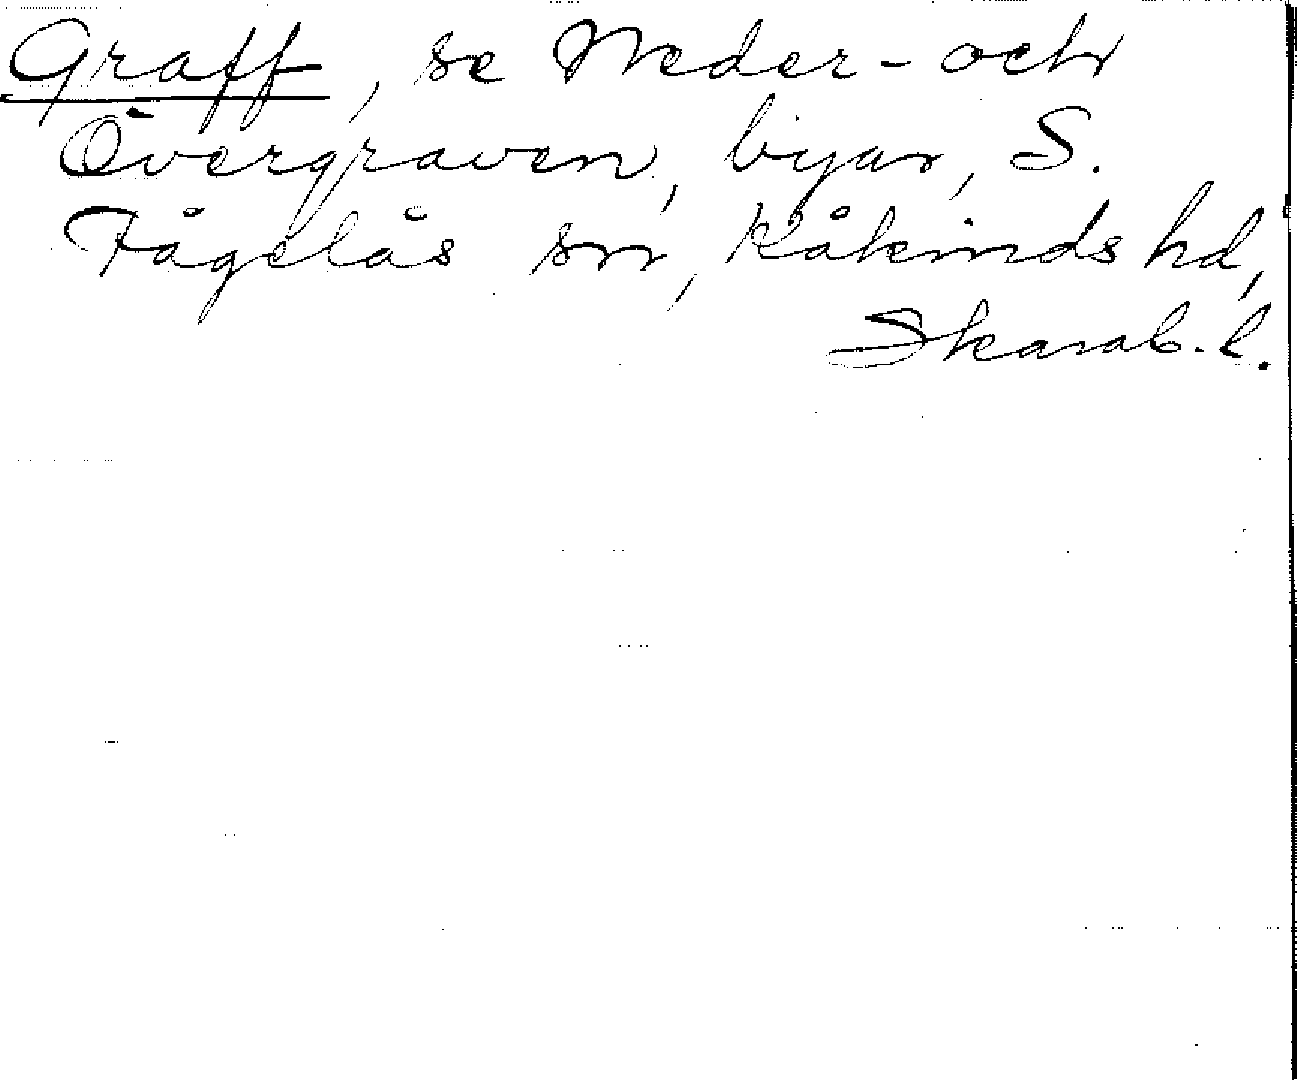 Graff, se Neder- och
Övergraven, byar, S.
Fågelås sn, Kåkinds hd,
Skarab. l.